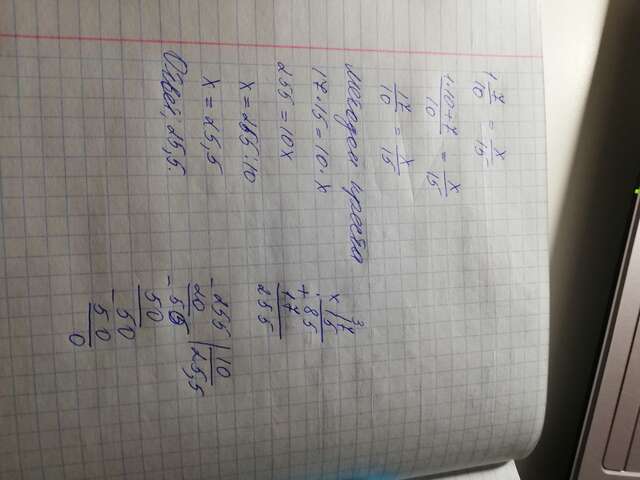 1 7/10 = x/15
1·10+7/10 = x/15
17/10 = x/15
Методом креста
17·15=10·x
255=10x
x=255:10
x=25,5
Ответ, 25,5.
3
17
× 15
+ 85
17
255
- 255 | 10
20 | 25,5
- 55
50
- 50
50
0